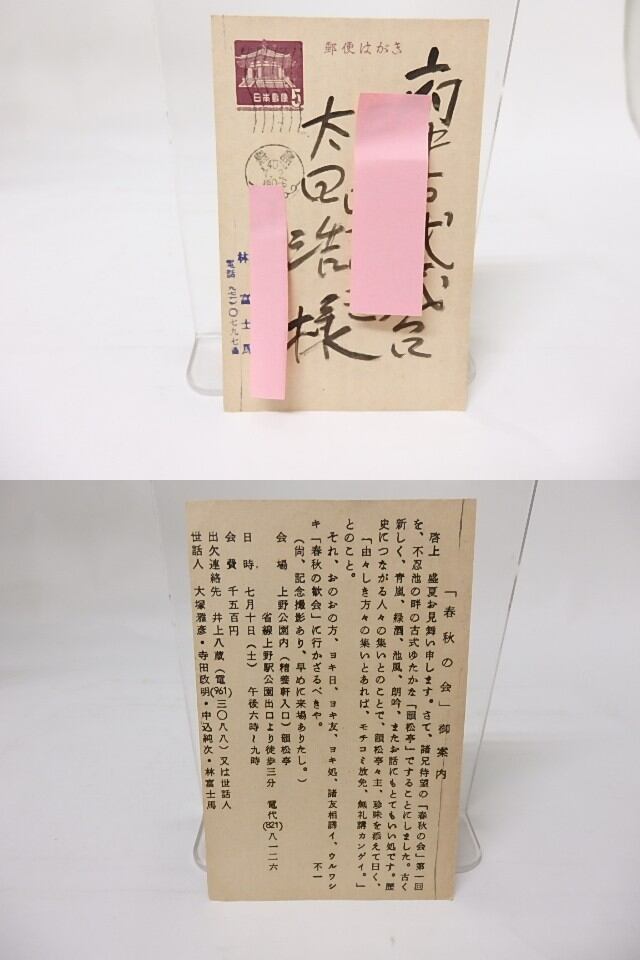 郵便はがき
日本郵便
5
太田
浩
様
林富士馬
電話
「春秋の会」御案内
啓上 盛夏お見舞い申します。さて、諸兄待望の「春秋の会」第一回
を、不忍池の畔の古式ゆたかな「韻松亭」ですることにしました。古く
新しく、青嵐、緑酒、池風、朗吟、またお話にもとてもいい処です。歴
史につながる人々の集いとのことで、韻松亭々主、珍味を添えて曰く、
「由々しき方々の集いとあれば、モチコミ放免、無礼講カンゲイ。」
とのこと。
それ、おのおの方、ヨキ日、ヨキ友、ヨキ処、諸友相誘イ、ウルワシ
キ「春秋の歓会」に行かざるべきや。 不一
(尚、記念撮影あり、早めに来場ありたし。)
会場 上野公園内(精養軒入口)韻松亭
省線上野駅公園出口より徒歩三分 電代(821)八一二六
日時 七月十日(土) 午後六時〜九時
会費 千五百円
出欠連絡先 井上八蔵(電(961)三〇八八)又は世話人
世話人 大塚雅彦・寺田政明・申込純次・林富士馬